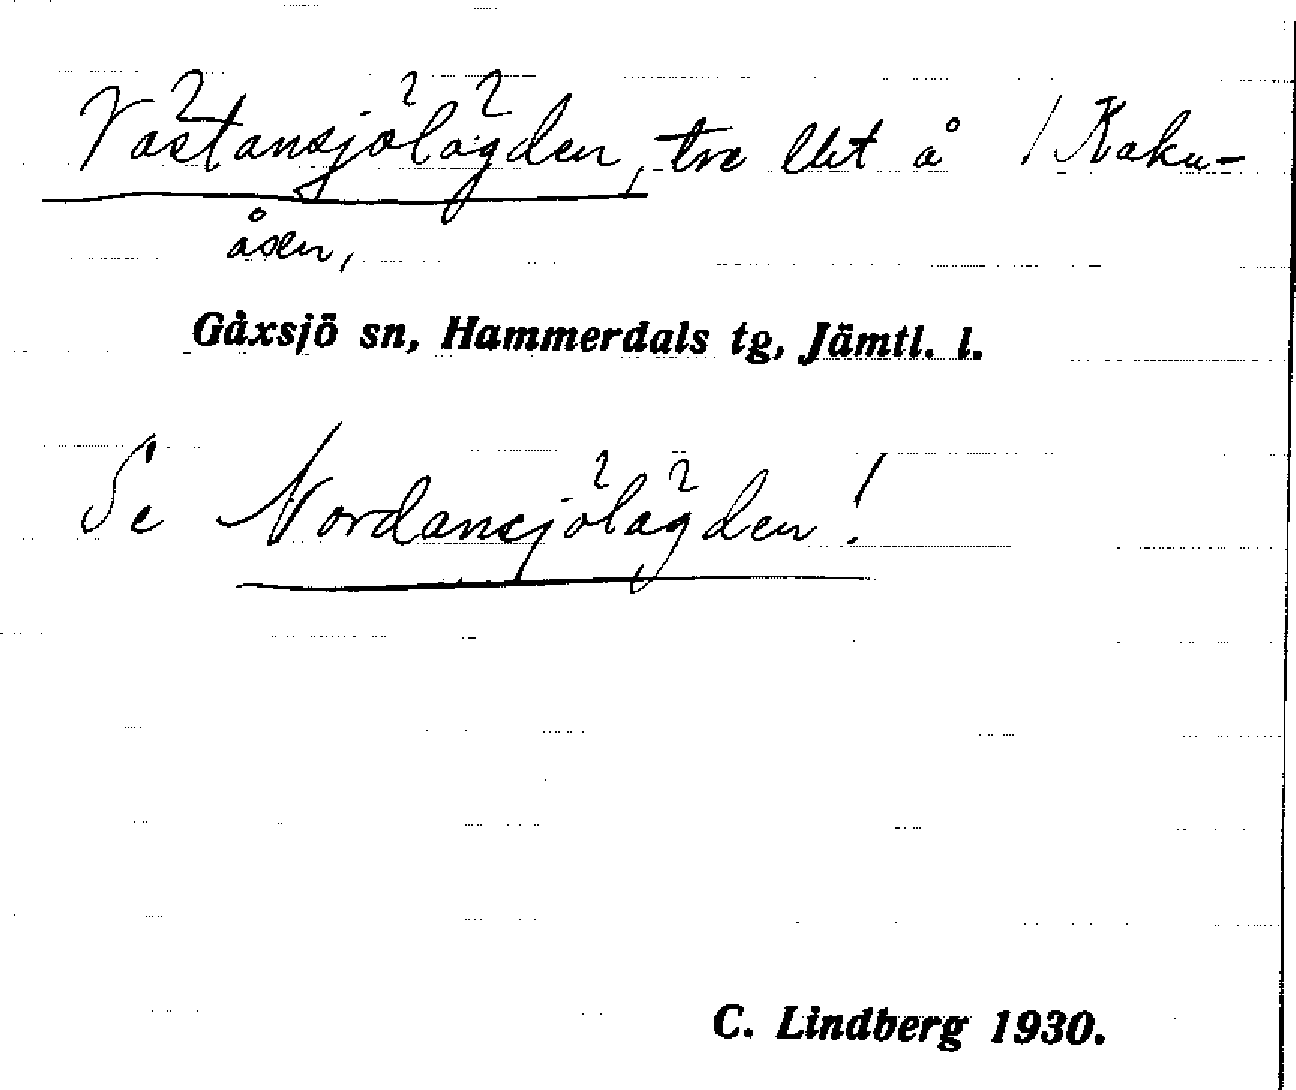 Västansjölägden, tre llit å /Kaku-
åsen,
Gåxsjö sn, Hammerdals tg, Jämtl. l.
Se Nordansjölägden!
C. Lindberg 1930.